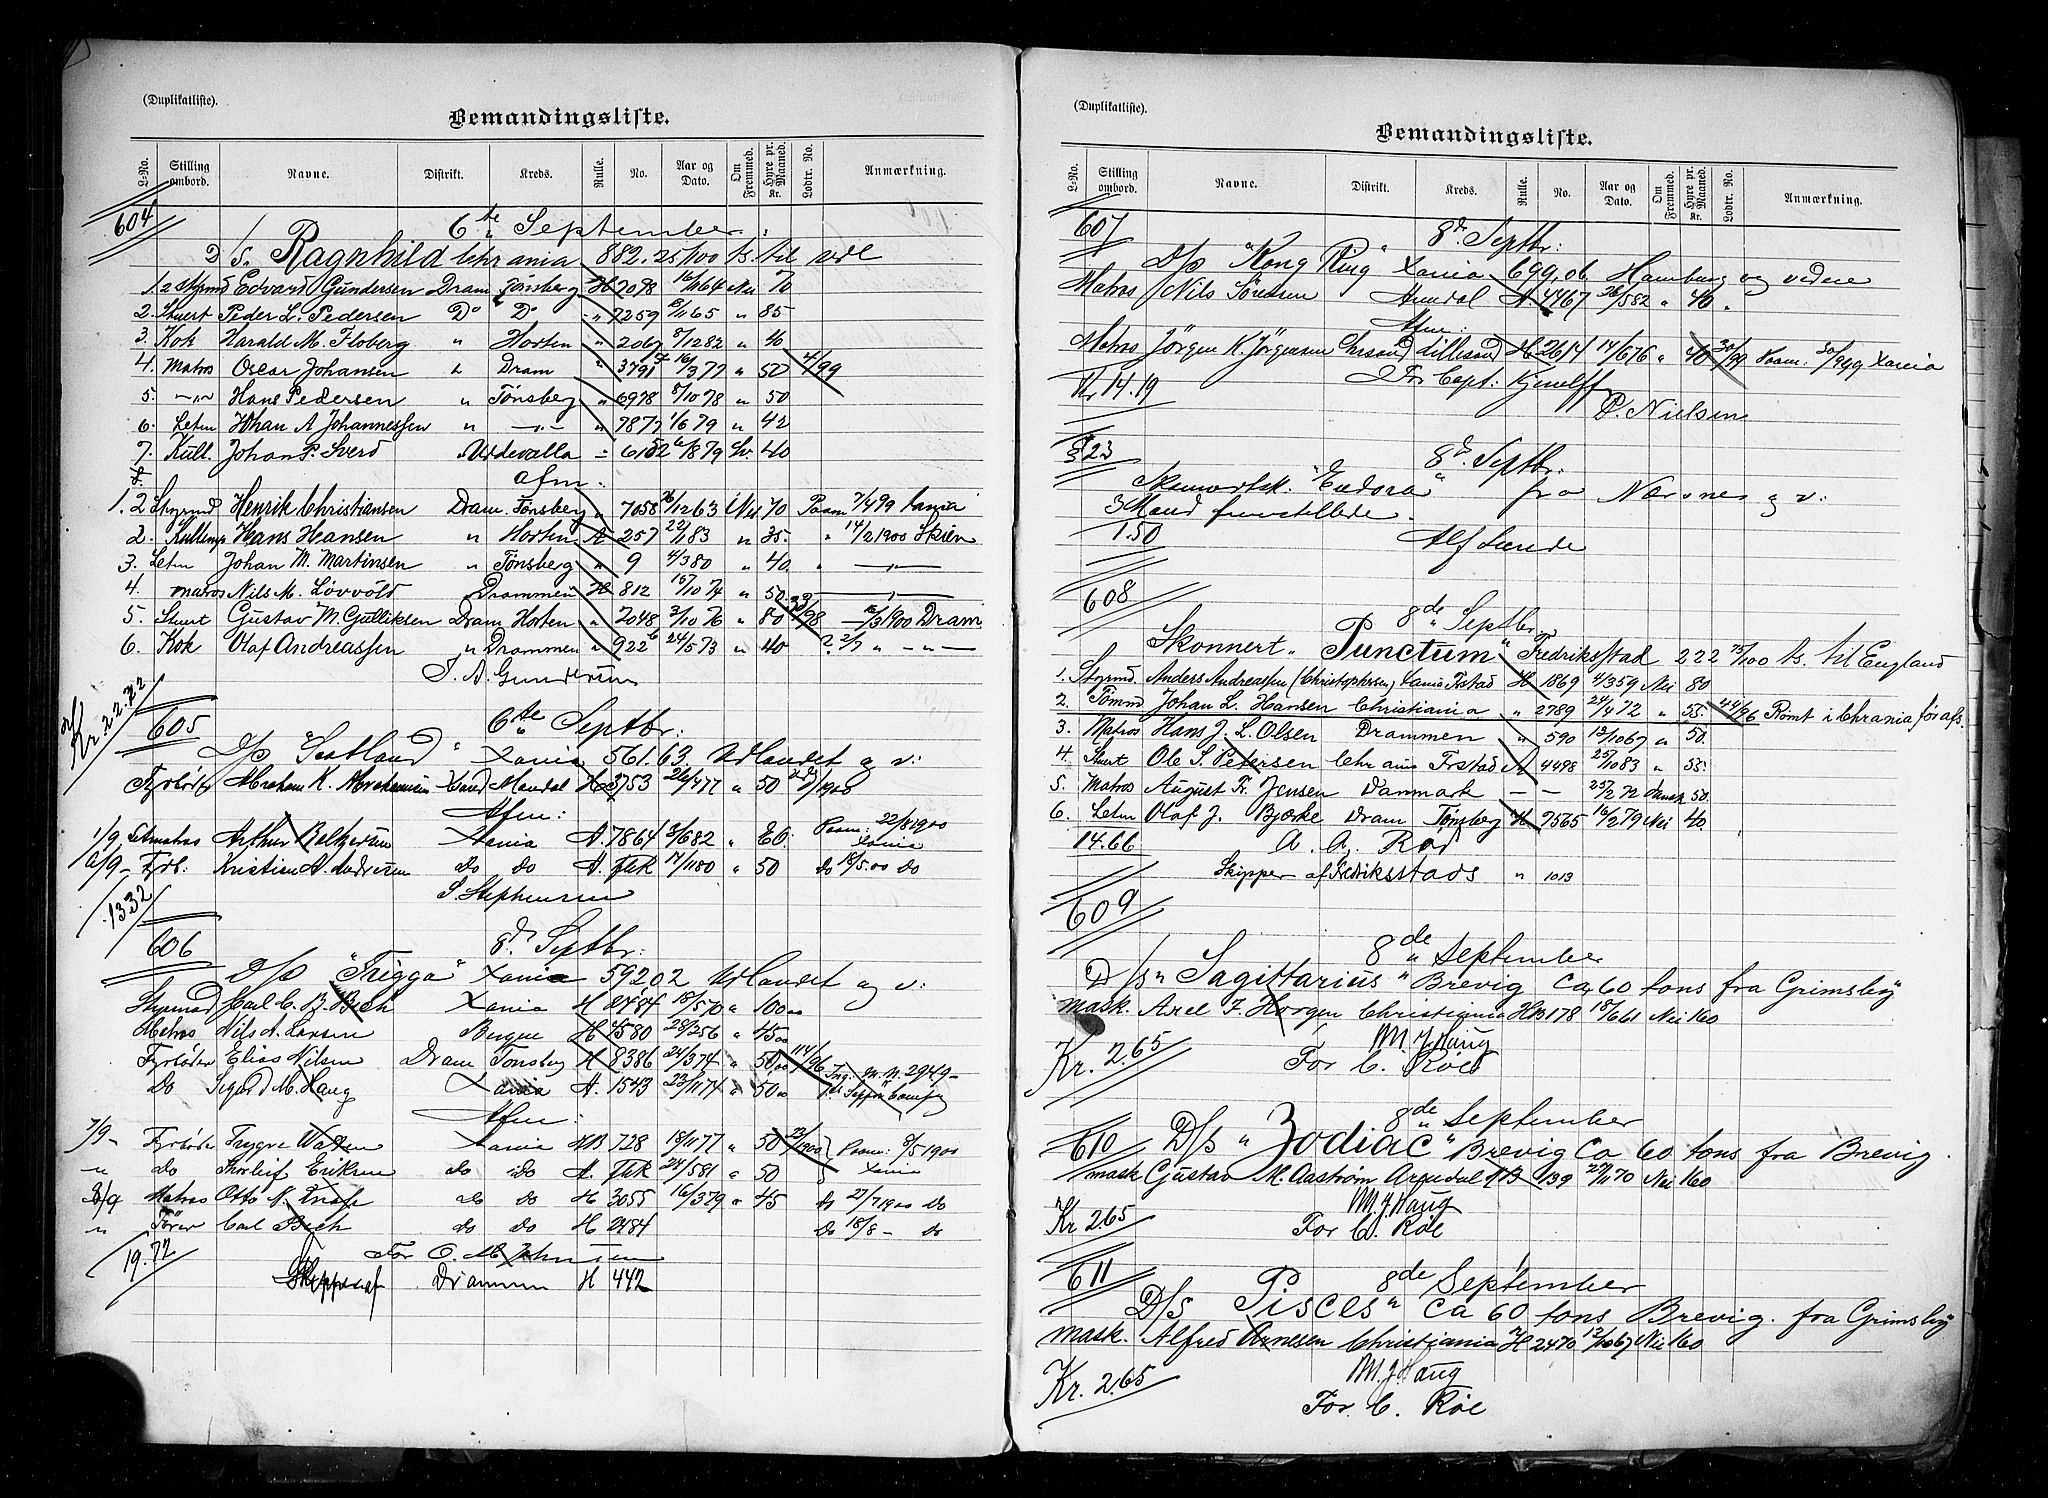 (Duplikatliste).
Bemandingsliste.
L-No. Stilling ombord. Navne. Distrikt. Kreds. Rulle. No. Aar og Dato. Om Fremmed. Hyre pr. Maaned. Kr. Lodtr. No. Anmærkning.
604 6te September:
D/S. Ragnhild Chrania 882.25/100 ts. til
1. 2 Styrmd Edvard Gundersen Dram Tønsberg H 2078 16/1164 Nei 70
2. Stuert Peder L. Pedersen Do Do " 7259 2/1165 " 85
3. Kok Harald M. Floberg " Horten " 2067 7/1282 " 46
4. Matros Oscar Johansen " Dram " 3791 16/377 " 50 4/99
5. -"- Hans Pedersen " Tønsberg " 6978 7/1078 " 50
6. Letm Johan A Johannessen " -"- " 7877 1/679 " 42
7. Kull. Johan P. Sverd Uddevalla = 6/879 Sv. 40
afm:
1. 2 Styrmd Henrik Christiansen Dram. Tønsberg " 7058 26/1263 Nei 70 Paam 7/499 Xania
2. Kullemp Hans Hansen " Horten A 257 22/183 " 35. " 14/2 1900 Skien
3. Letm Johan M. Martinsen " Tønsberg " 9 4/380 " 40. " -"-
4. matros Nils M. Løvvold Drammen H 812 16/1074 " 50. -"-
5. Stuert Gustav M. Gulliksen Dram Horten " 2048 3/1076 " 80 33/98 16/3 1900 Dram
6. Kok Olaf Andreassen " Drammen " 9226 24/573 " 40 ? 2/7 " -"-
J. A. Gundersen
Kr. 22.22
605 6te Septbr:
D/p "Scotland" Xania 561.63. Udlandet og v:
Fyrbøder Abraham K. Abrahamsen Xsand Mandal H 3753 26/477 " 50 /1900
Afm:
1/9 Letmatros Arthur Baltzersen Xania A. 7864 3/682 " 20. Paam: 22/8 1900 Xania
6/9 - Fyrb: Kristian A. Andersen do do A. Pak 17/1180 " 50 do 18/5.00 do
S Stephensen
13.32
606 8de Septbr:
D/p "Frigga" Xania 592.02 Udlandet og v:
Styrmand Carl C. B. Bech Xania H 2484 18/570 " 100.00
Matros Nils A. Larsen Bergen H 4580 28/256 " 45.00
Fyrbøder Elias Nilsen Dram Tønsberg H 8386 24/374 " 50.00 114/96
Do Sigurd M. Haug Xania A. 1543 23/1174 " 50.00
Afm:
7/9 - Fyrbøder Trygve Xania HB 728 18/1177 " 50 23/1900 Paam: 9/5 1900
" do Thorleif Eriksen do do A. Pak 24/581 " 50 Xania
8/9 Matros Otto N. do do H 3055 16/379 " 45 do 27/7 1900 do
" Fører Carl Bech do do H 2484 do 18/8 - do
19.72 For O. M. Johnsen
Skipper af Drammen H 442
(Duplikatliste).
Bemandingsliste.
L-No. Stilling ombord. Navne. Distrikt. Kreds. Rulle. No. Aar og Dato. Om Fremmed. Hyre pr. Maaned. Kr. Lodtr. No. Anmærkning.
607 8de Septbr:
D/p "Kong Ring" Xania 699,06 Hamburg og videre
Matros Nils Sørensen Arendal A 4467 26/582 " 40 "
Afm:
Matros Jörgen K. Jörgensen Chrsand Lillesand H 2614 14/676 " 40 30/99 Paam: 30/899 Xania
Kr 14.19 For Capt: Kjerulff
P. Nielsen
8de Septbr:
Skonnertsk. "Eudora" fra Nærsnes og v:
3 Mand fremstillede.
1.50 Alf Lunde
608 8de Septbr.
Skonnert "Punctum" Fredriksstad 222 75/100 ts. til England
1. Styrmd. Anders Andreassen (Christophersen) Xania Frstad H 1869 4/359 Nei 80
2. Tømmd Johan L. Hansen Christiania " 2789 24/472 " 55. 44/96 Rømt i Chrania før afs.
3. Matros Hans J. L. Olsen Drammen " 590 13/1067 " 50.
4. Stuert Ole S. Petersen Chrania Frstad A 4498 25/1083 " 55.
5. Matros August Fr. Jensen Danmark - - 25/272 dansk 50.
6. Letm Olaf J. Bjerke Dram Tønsberg H 7565 16/279 Nei 40.
14.66 A. A. Rød
Skipper af Fredriksstads " 1013
609 8de September
D/s "Sagittarius" Brevig Ca 60 tons fra Grimsby
mask. Axel F. Horgen Christiania HB 178 18/661 Nei 160
M. J. Haug
Kr. 2.65 For C. Røe
8de September
610 D/s "Zodiac" Brevig Ca 60 tons fra Brevig.
mask Gustav M. Aastrøm Arendal HB 139 27/1170 Nei 160
M. J. Haug
Kr 2.65 For C. Røe
611 8de September
D/s Pisces" Ca 60 tons Brevig. fra Grimsby
mask. Alfred Arnesen Christiania H 2470 12/1067 Nei 160
M. J. Haug
Kr. 2.65
For. C. Røe